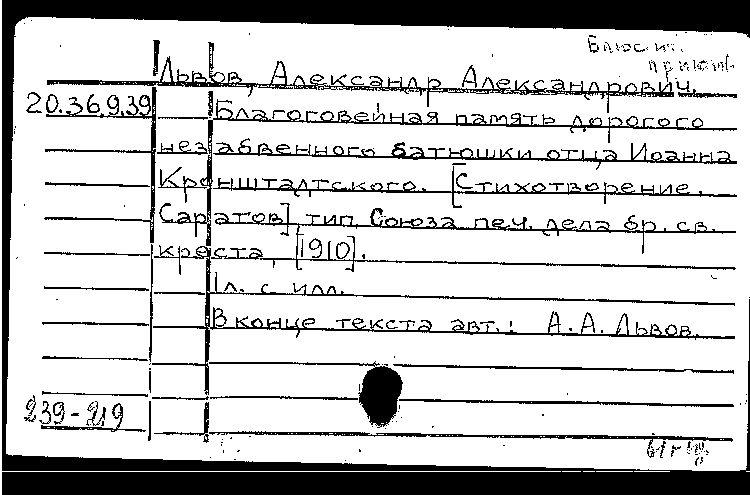 Львов, Александр Александрович.
20.36.9.39 Благоговейная память дорогого
незабвенного батюшки отца Иоанна
Кронштадтского. [Стихотворение.
Саратов] тип. Союза печ. дела бр. св.
креста, [1910].
1л. с илл.
В конце текста авт.: А.А. Львов.
239-219